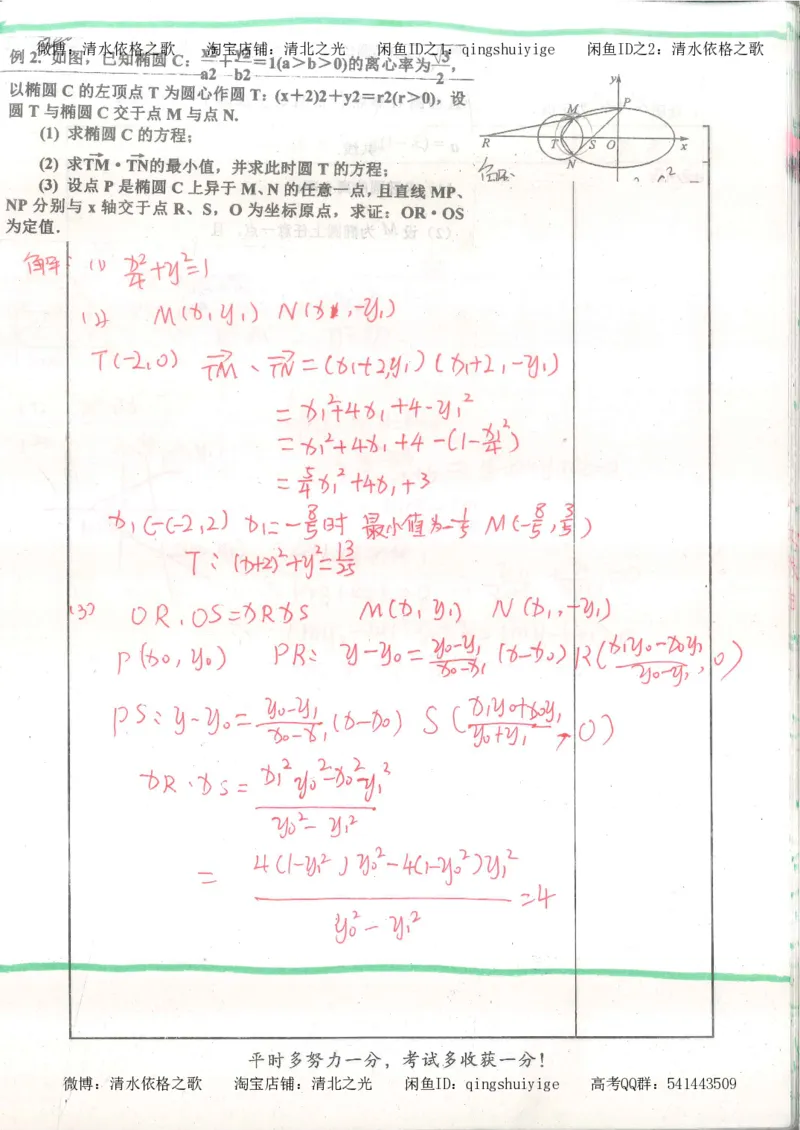 微博：清水依格之歌 淘宝店铺：清北之光 闲鱼ID之1：qingshuiyige 闲鱼ID之2：清水依格之歌
例 2. 如图，已知椭圆 C：x2/a2＋y2/b2＝1(a＞b＞0)的离心率为√3/2，
以椭圆 C 的左顶点 T 为圆心作圆 T：(x＋2)2＋y2＝r2(r＞0)，设
圆 T 与椭圆 C 交于点 M 与点 N.
(1) 求椭圆 C 的方程；
(2) 求TM→·TN→的最小值，并求此时圆 T 的方程；
(3) 设点 P 是椭圆 C 上异于 M、N 的任意一点，且直线 MP、
NP 分别与 x 轴交于点 R、S，O 为坐标原点，求证：OR·OS
为定值.
y
M P
R T S O x
N
解: (1) x²/4+y²=1
(2) M(x1,y1) N(x1,-y1)
T(-2,0) TM→、TN→=(x1+2,y1)(x1+2,-y1)
=x1²+4x1+4-y1²
=x1²+4x1+4-(1-x1²/4)
=5/4x1²+4x1+3
x1∈(-2,2) x1=-8/5时 最小值为-1/5 M(-8/5,3/5)
T:(x+2)²+y²=13/25
(3) OR.OS=xRxS M(x1,y1) N(x1,-y1)
P(x0,y0) PR: y-y0=y0-y1/x0-x1(x-x0) R(x1y0-x0y1/y0-y1,0)
PS:y-y0=y0-y1/x0-x1(x-x0) S(x1y0+x0y1/y0+y1,0)
xR·xS=x1²y0²-x0²y1²/y0²-y1²
=4(1-y1²)y0²-4(1-y0²)y1²/y0²-y1²=4
平时多努力一分，考试多收获一分！
微博：清水依格之歌 淘宝店铺：清北之光 闲鱼ID：qingshuiyige 高考QQ群：541443509